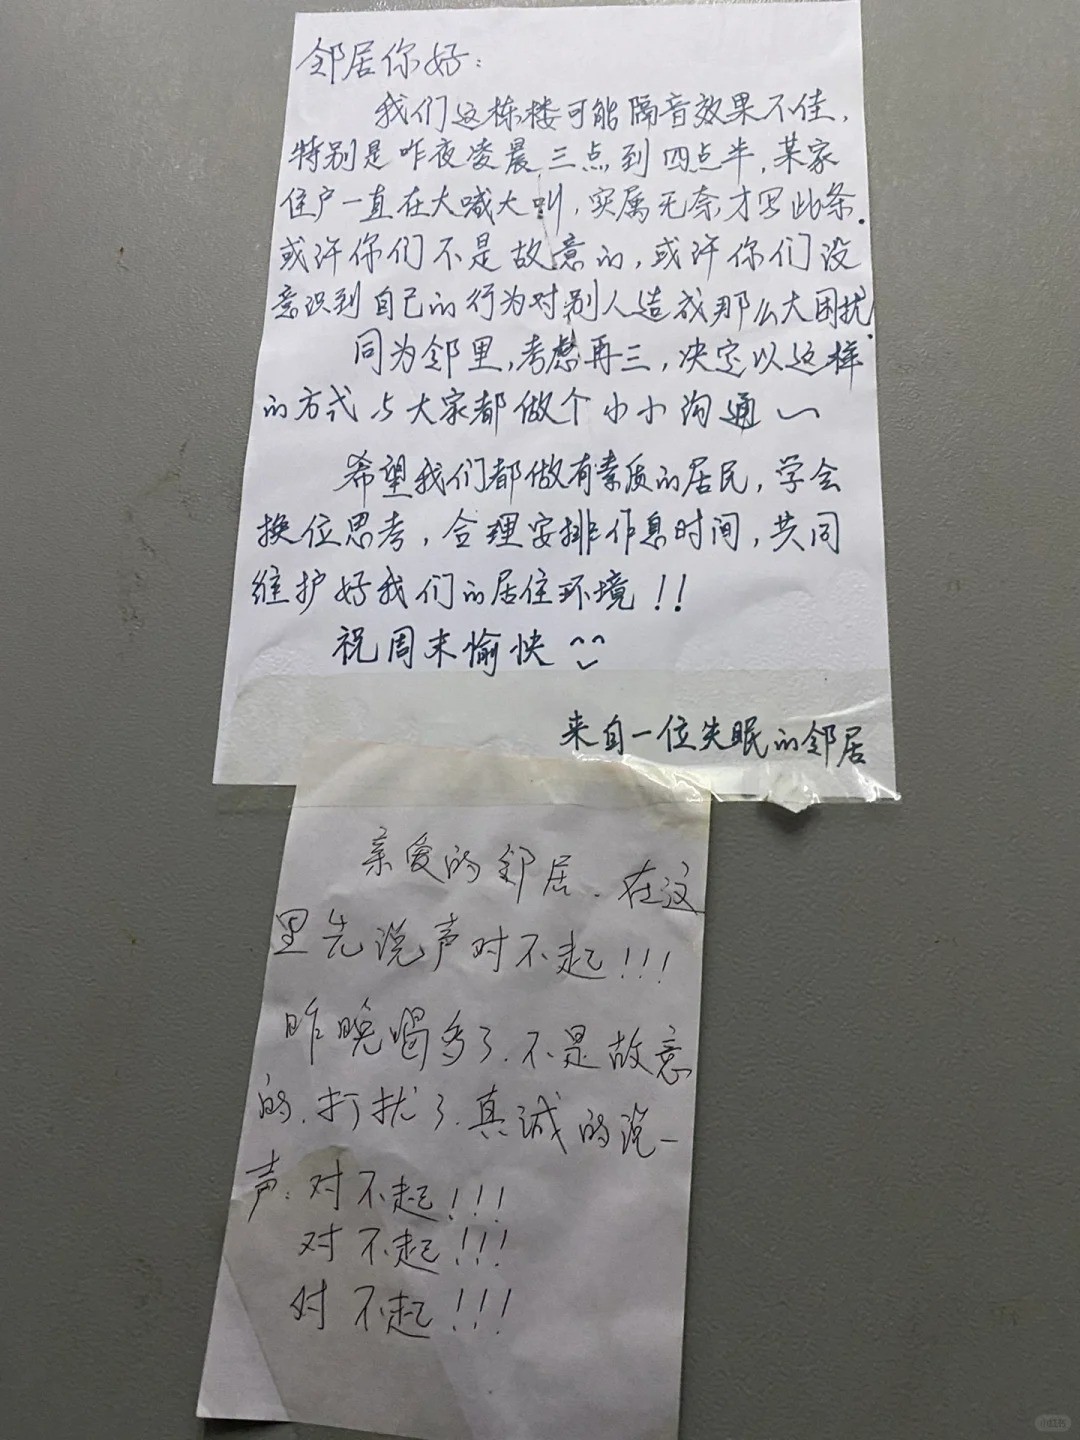 邻居你好：
我们这栋楼可能隔音效果不佳，
特别是昨夜凌晨三点到四点半，某家
住户一直在大喊大叫，实属无奈才写此条.
或许你们不是故意的，或许你们没
意识到自己的行为对别人造成那么大困扰.
同为邻里，考虑再三，决定以这样
的方式与大家都做个小小沟通~
希望我们都做有素质的居民，学会
换位思考，合理安排作息时间，共同
维护好我们的居住环境！！
祝周末愉快^^
来自一位失眠的邻居
亲爱的邻居.在这
里先说声对不起！！！
昨晚喝多了.不是故意
的.打扰了.真诚的说一
声：对不起！！！
对不起！！！
对不起！！！
小红书